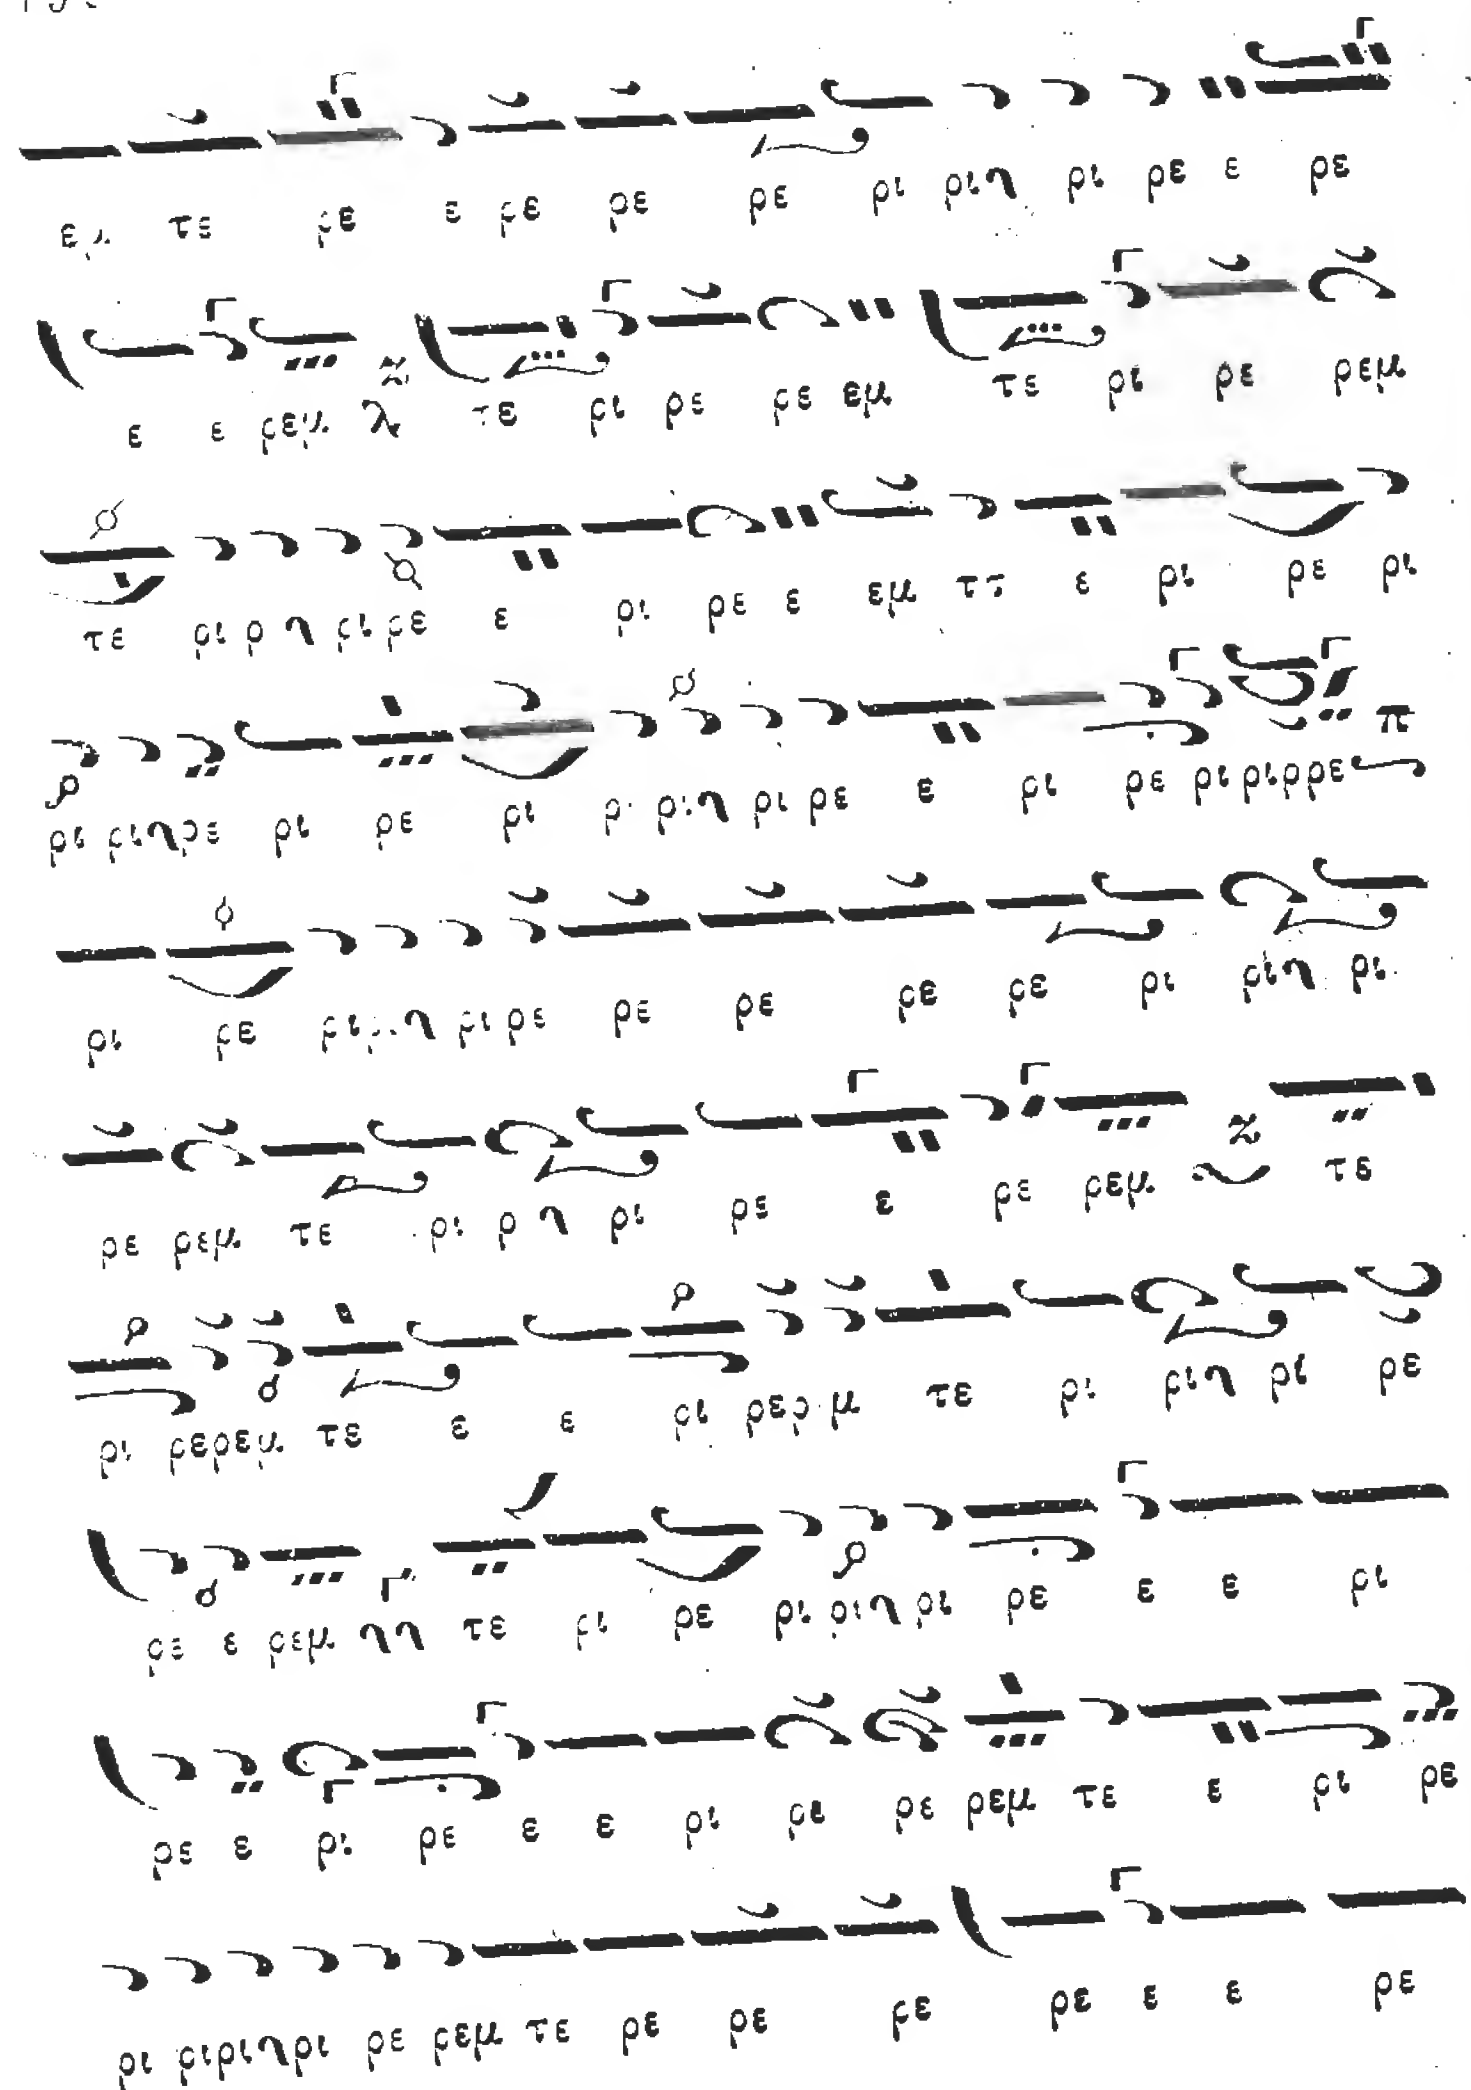 εμ τε ρε ε ρε ρε ρε ρι ριλ ρι ρε ε ρε
ε ε ρεμ λ τε ρι ρε ρε εμ τε ρι ρε ρεμ
τε ρι ρ λ ρι ρε ε ρι ρε ε εμ τε ε ρι ρε ρι
ρι ριλρε ρι ρε ρι ρι ριλ ρι ρε ε ρι ρε ρι ριρρε π
ρι ρε ριριλ ρι ρε ρε ρε ρε ρε ρι ριλ ρι
ρε ρεμ τε ρι ρ λ ρι ρε ε ρε ρεμ τε
ρι ρερεμ τε ε ε ρι ρερεμ τε ρι ριλ ρι ρε
ρε ε ρεμ λλ τε ρι ρε ρι ριλ ρι ρε ε ε ρι
ρε ε ρι ρε ε ε ρι ρε ρε ρεμ τε ε ρι ρε
ρι ριριλρι ρε ρεμ τε ρε ρε ρε ρε ε ε ρε